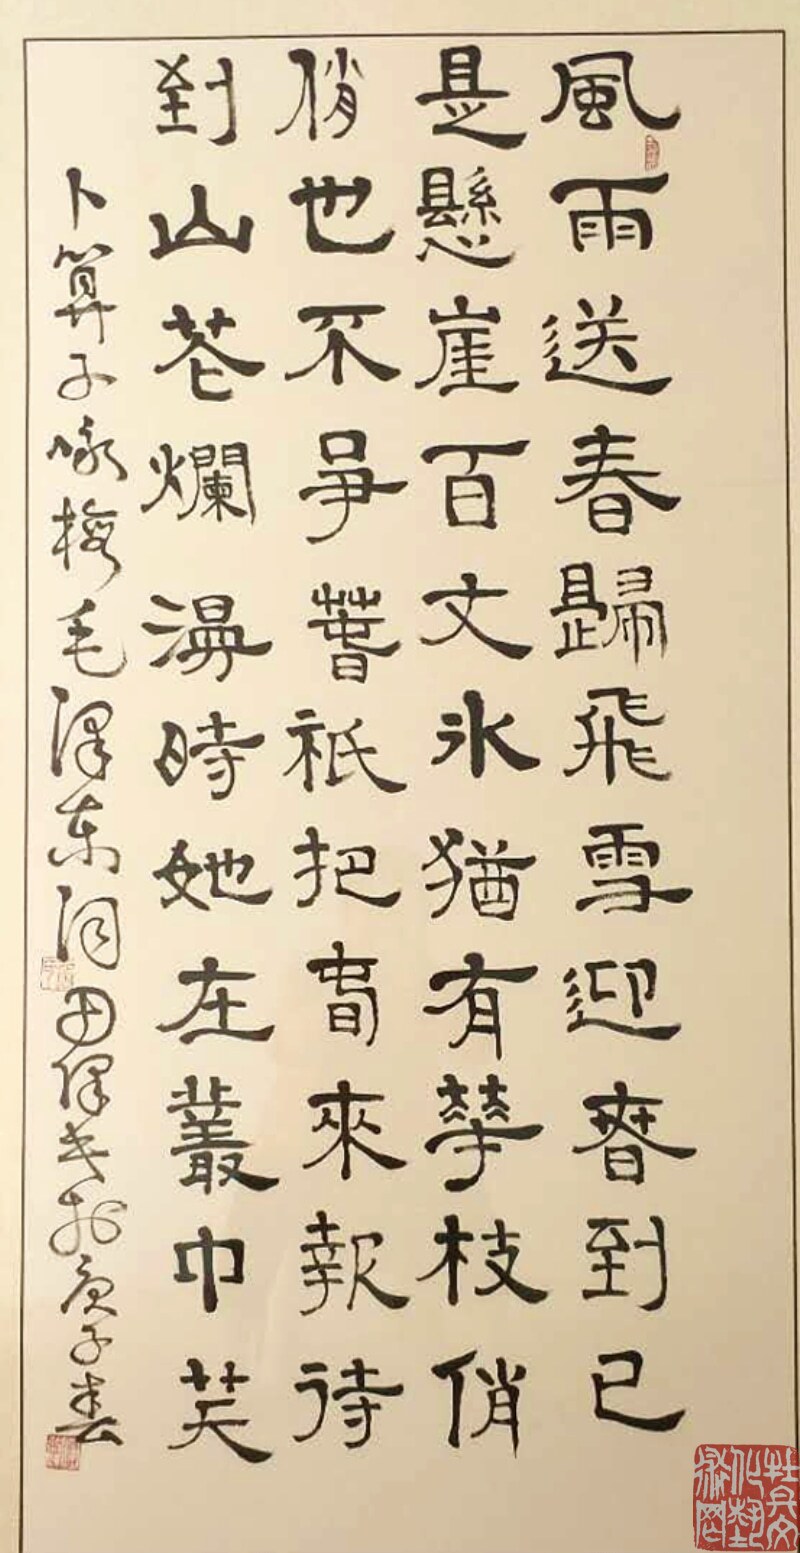 風雨送春歸飛雪迎春到已
是懸崖百丈冰猶有華枝俏
俏也不爭春祇把春來報待
到山花爛漫時她在叢中笑
卜算子咏梅毛澤東詞田書於庚子春